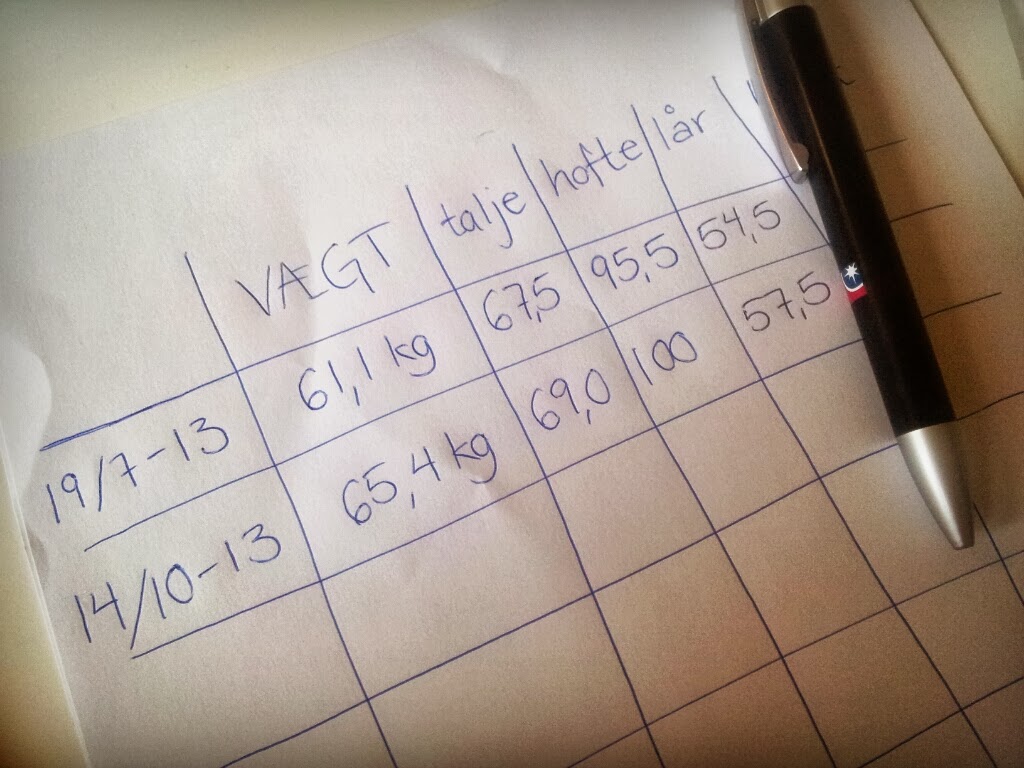 VÆGT talje hofte lår
19/7-13 61,1 kg 67,5 95,5 54,5
14/10-13 65,4 kg 69,0 100 57,5